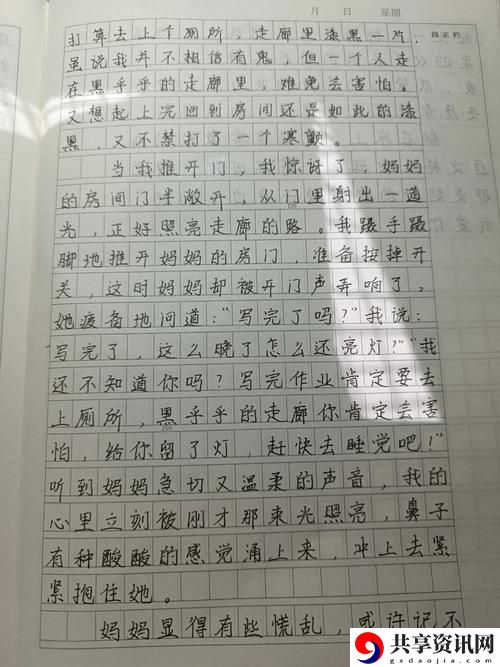 月 日 星期
订正栏
打算去上个厕所，走廊里漆黑一片，
虽说我并不相信有鬼，但一个人走
在黑乎乎的走廊里，难免会害怕。
又想起上完回到房间还是如此的漆
黑，又不禁打了一个寒颤。
当我推开门，我惊讶了，妈妈
的房间门半敞开，从门里射出一道
光，正好照亮走廊的路。我蹑手蹑
脚地推开妈妈的房门，准备按掉开
关，这时妈妈却被开门声弄响了，
她疲备地问道：“写完了吗？”我说：
写完了，这么晚了怎么还亮灯？”“我
还不知道你吗？写完作业肯定要去
上厕所，黑乎乎的走廊你肯定会害
怕，给你留了灯，赶快去睡觉吧！”
听到妈妈急切又温柔的声音，我的
心里立刻被刚才那束光照亮，鼻子
有种酸酸的感觉涌上来，冲上去紧
紧抱住她。
妈妈显得有些慌乱，或许记不
共享资讯网
gxdaojia.com